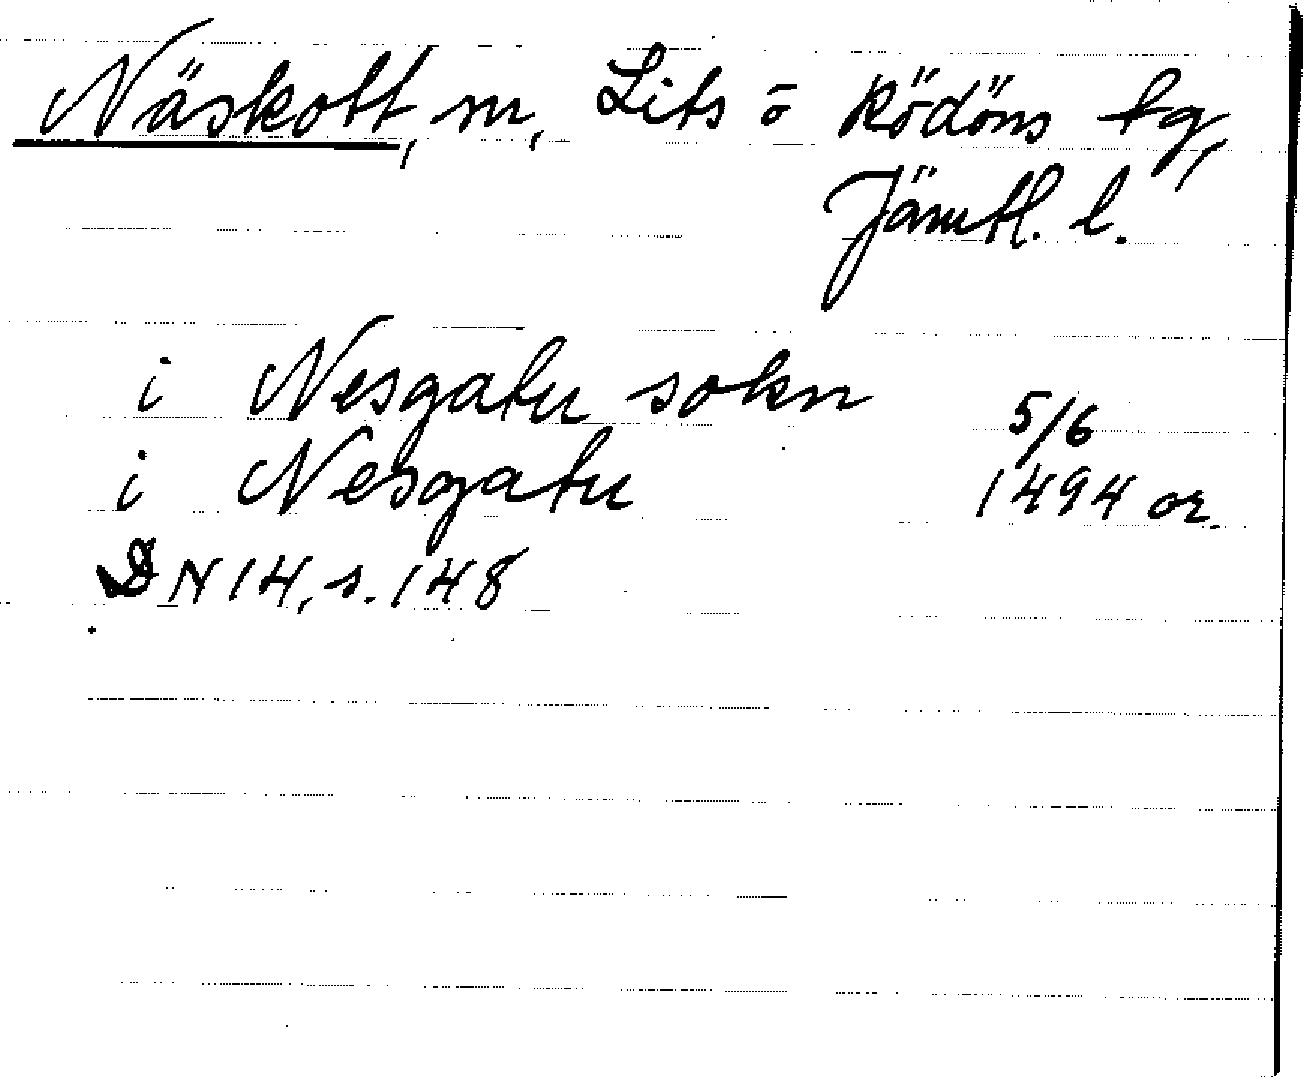 Näskott, sn, Lits o Rödöns tg,
Jämtl. l.
i Nesgatu sokn 5/6
i Nesgatu 1494 or.
DN 14, s. 148